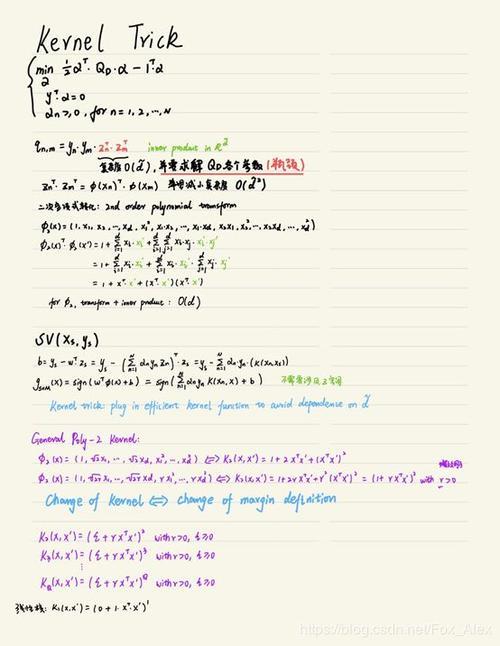 Kernel Trick
min ½ αᵀ·Q_D·α − 1ᵀ·α
α
yᵀ·α = 0
αn ≥ 0, for n = 1, 2, ..., N
q_{n,m} = y_n·y_m·z_nᵀ·z_m inner product in R^d̃
复杂度 O(d̃), 并需求解 Q_D 各个参数 (瓶颈)
z_nᵀ·z_m = φ(x_n)ᵀ·φ(x_m) O(d̃²)
二次多项式转化: 2nd order polynomial transform
φ₂(x) = (1, x₁, x₂, ..., x_d, x₁², x₁x₂, ..., x₁x_d, x₂x₁, x₂², ..., x₂x_d, ..., x_d²)
φ₂(x)ᵀ·φ₂(x') = 1 + Σ_{i=1}^d x_i·x_i' + Σ_{i=1}^d Σ_{j=1}^d x_i·x_j·x_i'·x_j'
= 1 + Σ_{i=1}^d x_i·x_i' + Σ_{i=1}^d x_i·x_i'·Σ_{j=1}^d x_j·x_j'
= 1 + xᵀ·x' + (xᵀ·x')(xᵀ·x')
for φ₂, transform + inner product: O(d)
SV(x_s, y_s)
b = y_s − wᵀz_s = y_s − (Σ_{n=1}^N α_n y_n z_n)ᵀ·z_s = y_s − Σ_{n=1}^N α_n·y_n·(K(x_n, x_s))
g_SVM(x) = sign(wᵀφ(x) + b) = sign(Σ_{n=1}^N α_n y_n K(x_n, x) + b) 不需要涉及 Z 空间
Kernel trick: plug in efficient kernel function to avoid dependence on d̃
General Poly-2 Kernel:
φ₂(x) = (1, √2x₁, ..., √2x_d, x₁², ..., x_d²) ⟺ K₂(x, x') = 1 + 2xᵀx' + (xᵀx')²
φ₂(x) = (1, √2γx₁, ..., √2γx_d, γx₁², ..., γx_d²) ⟺ K₂(x, x') = 1 + 2γxᵀx' + γ²(xᵀx')² = (1 + γxᵀx')² with γ>0
Change of Kernel ⟺ change of margin definition
K₂(x, x') = (ξ + γxᵀx')² with γ>0, ξ≥0
K₃(x, x') = (ξ + γxᵀx')³ with γ>0, ξ≥0
⋮
K_Q(x, x') = (ξ + γxᵀx')^Q with γ>0, ξ≥0
线性核: K₁(x, x') = (0 + 1·xᵀ·x')¹
https://blog.csdn.net/Fox_Alex